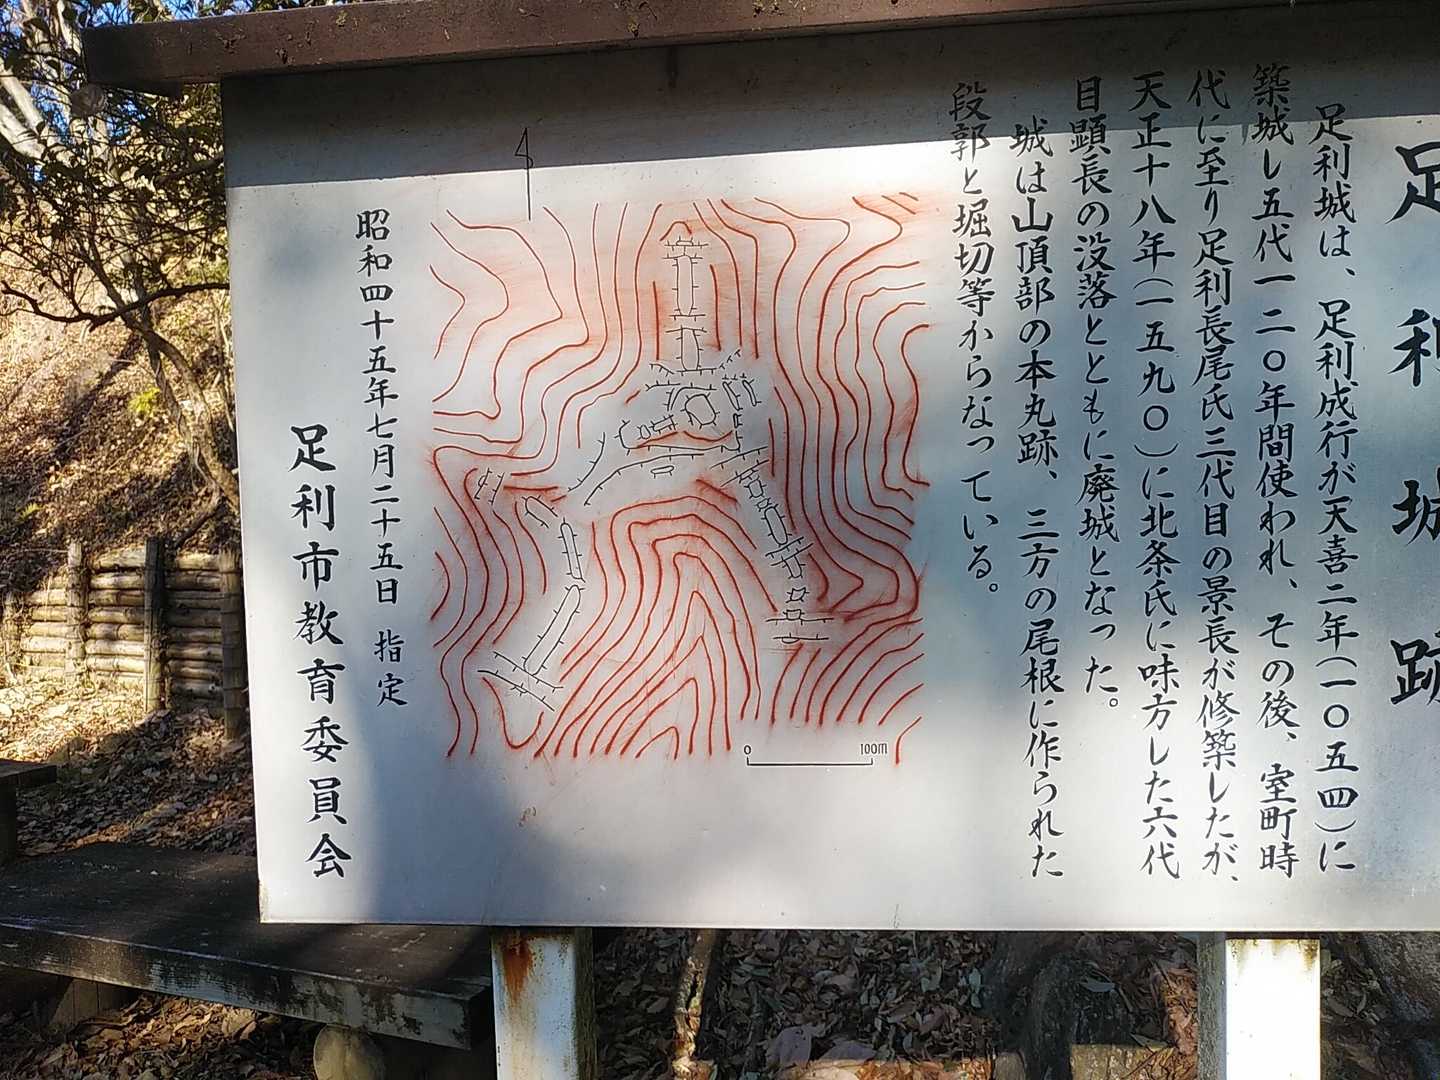 足利城跡
足利城は、足利成行が天喜二年(一〇五四)に
築城し五代一二〇年間使われ、その後、室町時
代に至り足利長尾氏三代目の景長が修築したが、
天正十八年(一五九〇)に北条氏に味方した六代
目顕長の没落とともに廃城となった。
城は山頂部の本丸跡、三方の尾根に作られた
段郭と堀切等からなっている。
0 100m
昭和四十五年七月二十五日 指定
足利市教育委員会